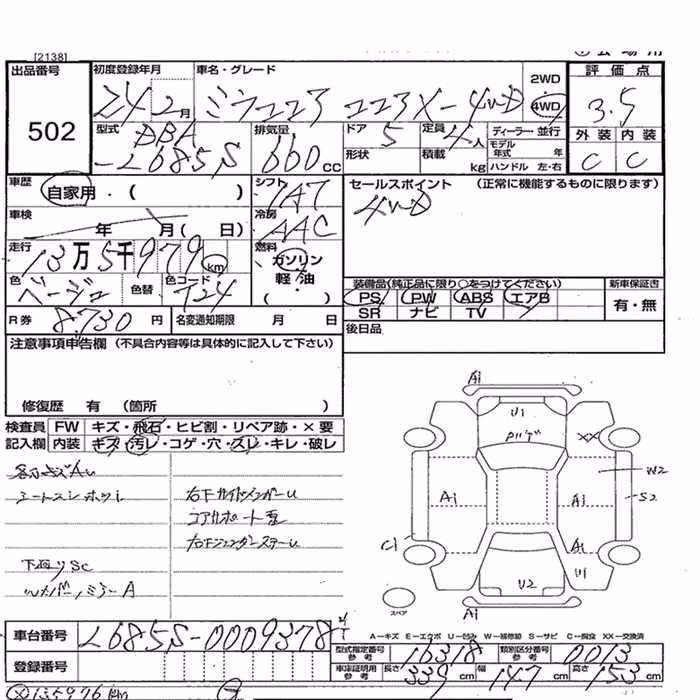 [2138]
出品番号 初度登録年月 車名・グレード 2WD 評価点
502 24 2月 ミラココア ココアX-4WD 4WD 3.5
型式 DBA 排気量 ドア 5 定員 4人 ディーラー・並行 外装 内装
-L685S 660cc 形状 積載 kg モデル年式 年 C C
ハンドル 左・右
車歴 自家用・( ) シフト IAT セールスポイント (正常に機能するものに限ります)
車検 年 月( 日) 冷房 AAC 4WD
走行 13万5千979km 燃料 ガソリン
軽油・( )
色 ベージュ 色替 色コード T24 装備品(純正品に限り○をつけてください) 新車保証書
PS PW ABS エアB 有・無
SR ナビ TV
R券 8.730円 名変通知期限 月 日 後日品
注意事項申告欄 (不具合内容等は具体的に記入して下さい)
修復歴 有 (箇所 )
検査員 FW キズ・飛石・ヒビ割・リペア跡・×要
記入欄 内装 キズ・汚レ・コゲ・穴・スレ・キレ・破レ
下廻りSC
A1
U1
XX
W2
S2
A1
A1
C1
A1
U1
U2
スペア
A1
A-キズ E-エクボ U-凹ミ W-補修跡 S-サビ C-腐食 XX-交換済
車台番号 L685S-0009378
型式指定番号 参考 16318 類別区分番号 参考 0013
登録番号 車庫証明用 参考 長さ 339cm 幅 147cm 高さ 153cm
135976km